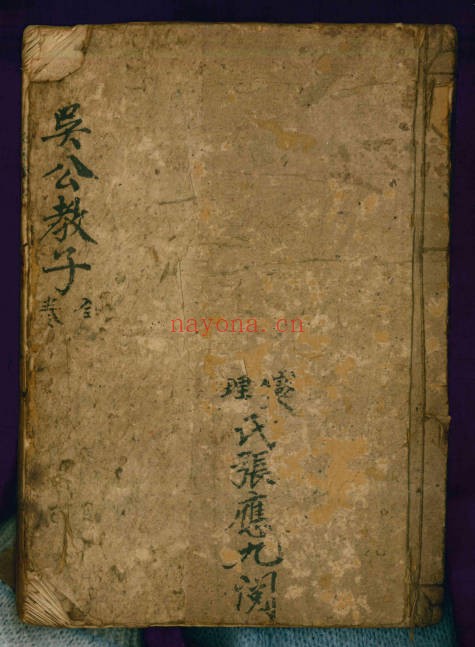 吳公教子
全卷
氏張應九閱
nayona.cn